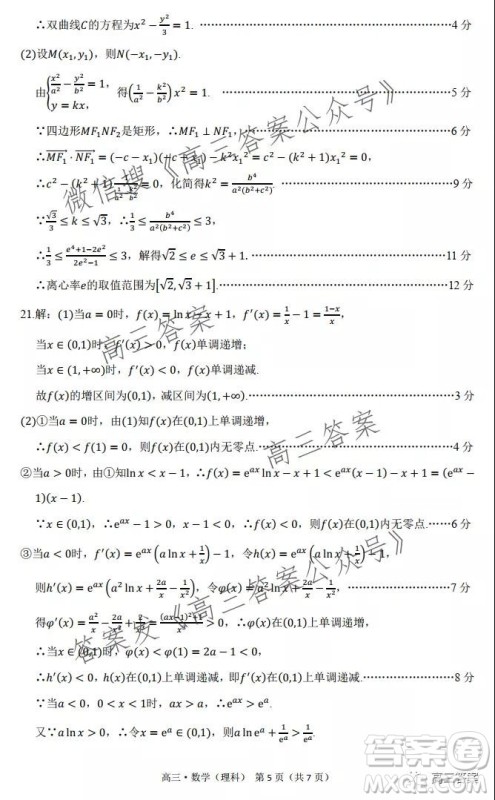 ∴双曲线C的方程为x²−y²/3=1. ……4分
(2)设M(x₁,y₁)，则N(−x₁,−y₁).
由{x²/a²−y²/b²=1, y=kx, 得(1/a²−k²/b²)x²=1. ……5分
∵四边形MF₁NF₂是矩形，∴MF₁⊥NF₁， ……6分
∴MF₁·NF₁=(−c−x₁)(−c+x₁)−k²x₁²=c²−(k²+1)x₁²=0,
∴c²−(k²+1)
=0，化简得k²=b⁴/(a²(b²+c²)). ……9分
∵√3/3≤k≤√3，∴1/3≤b⁴/(a²(b²+c²))≤3,
∴1/3≤(e⁴+1−2e²)/(2e²−1)≤3，解得√2≤e≤√3+1. ……11分
∴离心率e的取值范围为[√2,√3+1]. ……12分
21.解：(1)当a=0时，f(x)=ln x−x+1，f′(x)=1/x−1=(1−x)/x，
当x∈(0,1)时，f′(x)>0，f(x)单调递增；
当x∈(1,+∞)时，f′(x)<0，f(x)单调递减.
故f(x)的增区间为(0,1)，减区间为(1,+∞). ……3分
(2)①当a=0时，由(1)知f(x)在(0,1)上单调递增，
∴f(x)<f(1)=0，则f(x)在(0,1)内无零点. ……4分
②当a>0时，由①知ln x<x−1，∴f(x)=e^(ax) ln x−x+1<e^(ax)(x−1)−x+1=(e^(ax)−
1)(x−1).
∵x∈(0,1)，∴e^(ax)−1>0，x−1<0，∴f(x)<0，则f(x)在(0,1)内无零点. ……6分
③当a<0时，f′(x)=e^(ax)(a ln x+1/x)−1，令h(x)=e^(ax)(a ln x+1/x)−1，
则h′(x)=e^(ax)(a²ln x+2a/x−1/x²)，令φ(x)=a²ln x+2a/x−1/x²， ……7分
得φ′(x)=a²/x−2a/x²+2/x³=((ax−1)²+1)/x³>0，∴φ(x)在(0,1)上单调递增，
当x∈(0,1)时，φ(x)<φ(1)=2a−1<0，
∴h′(x)<0，h(x)在(0,1)上单调递减，即f′(x)在(0,1)上单调递减. ……8分
∵当a<0，0<x<1时，ax>a，∴e^(ax)>e^a.
又∵a ln x>0，∴令x=e^a∈(0,1)，则a ln e^a+1/e^a>1/e^a，
高三·数学（理科） 第5页（共7页）
微信搜《高三答案公众号》
高三答案
高三答案
答案发《高三答案公众号》
答案圈
高三答案
MXQE.COM